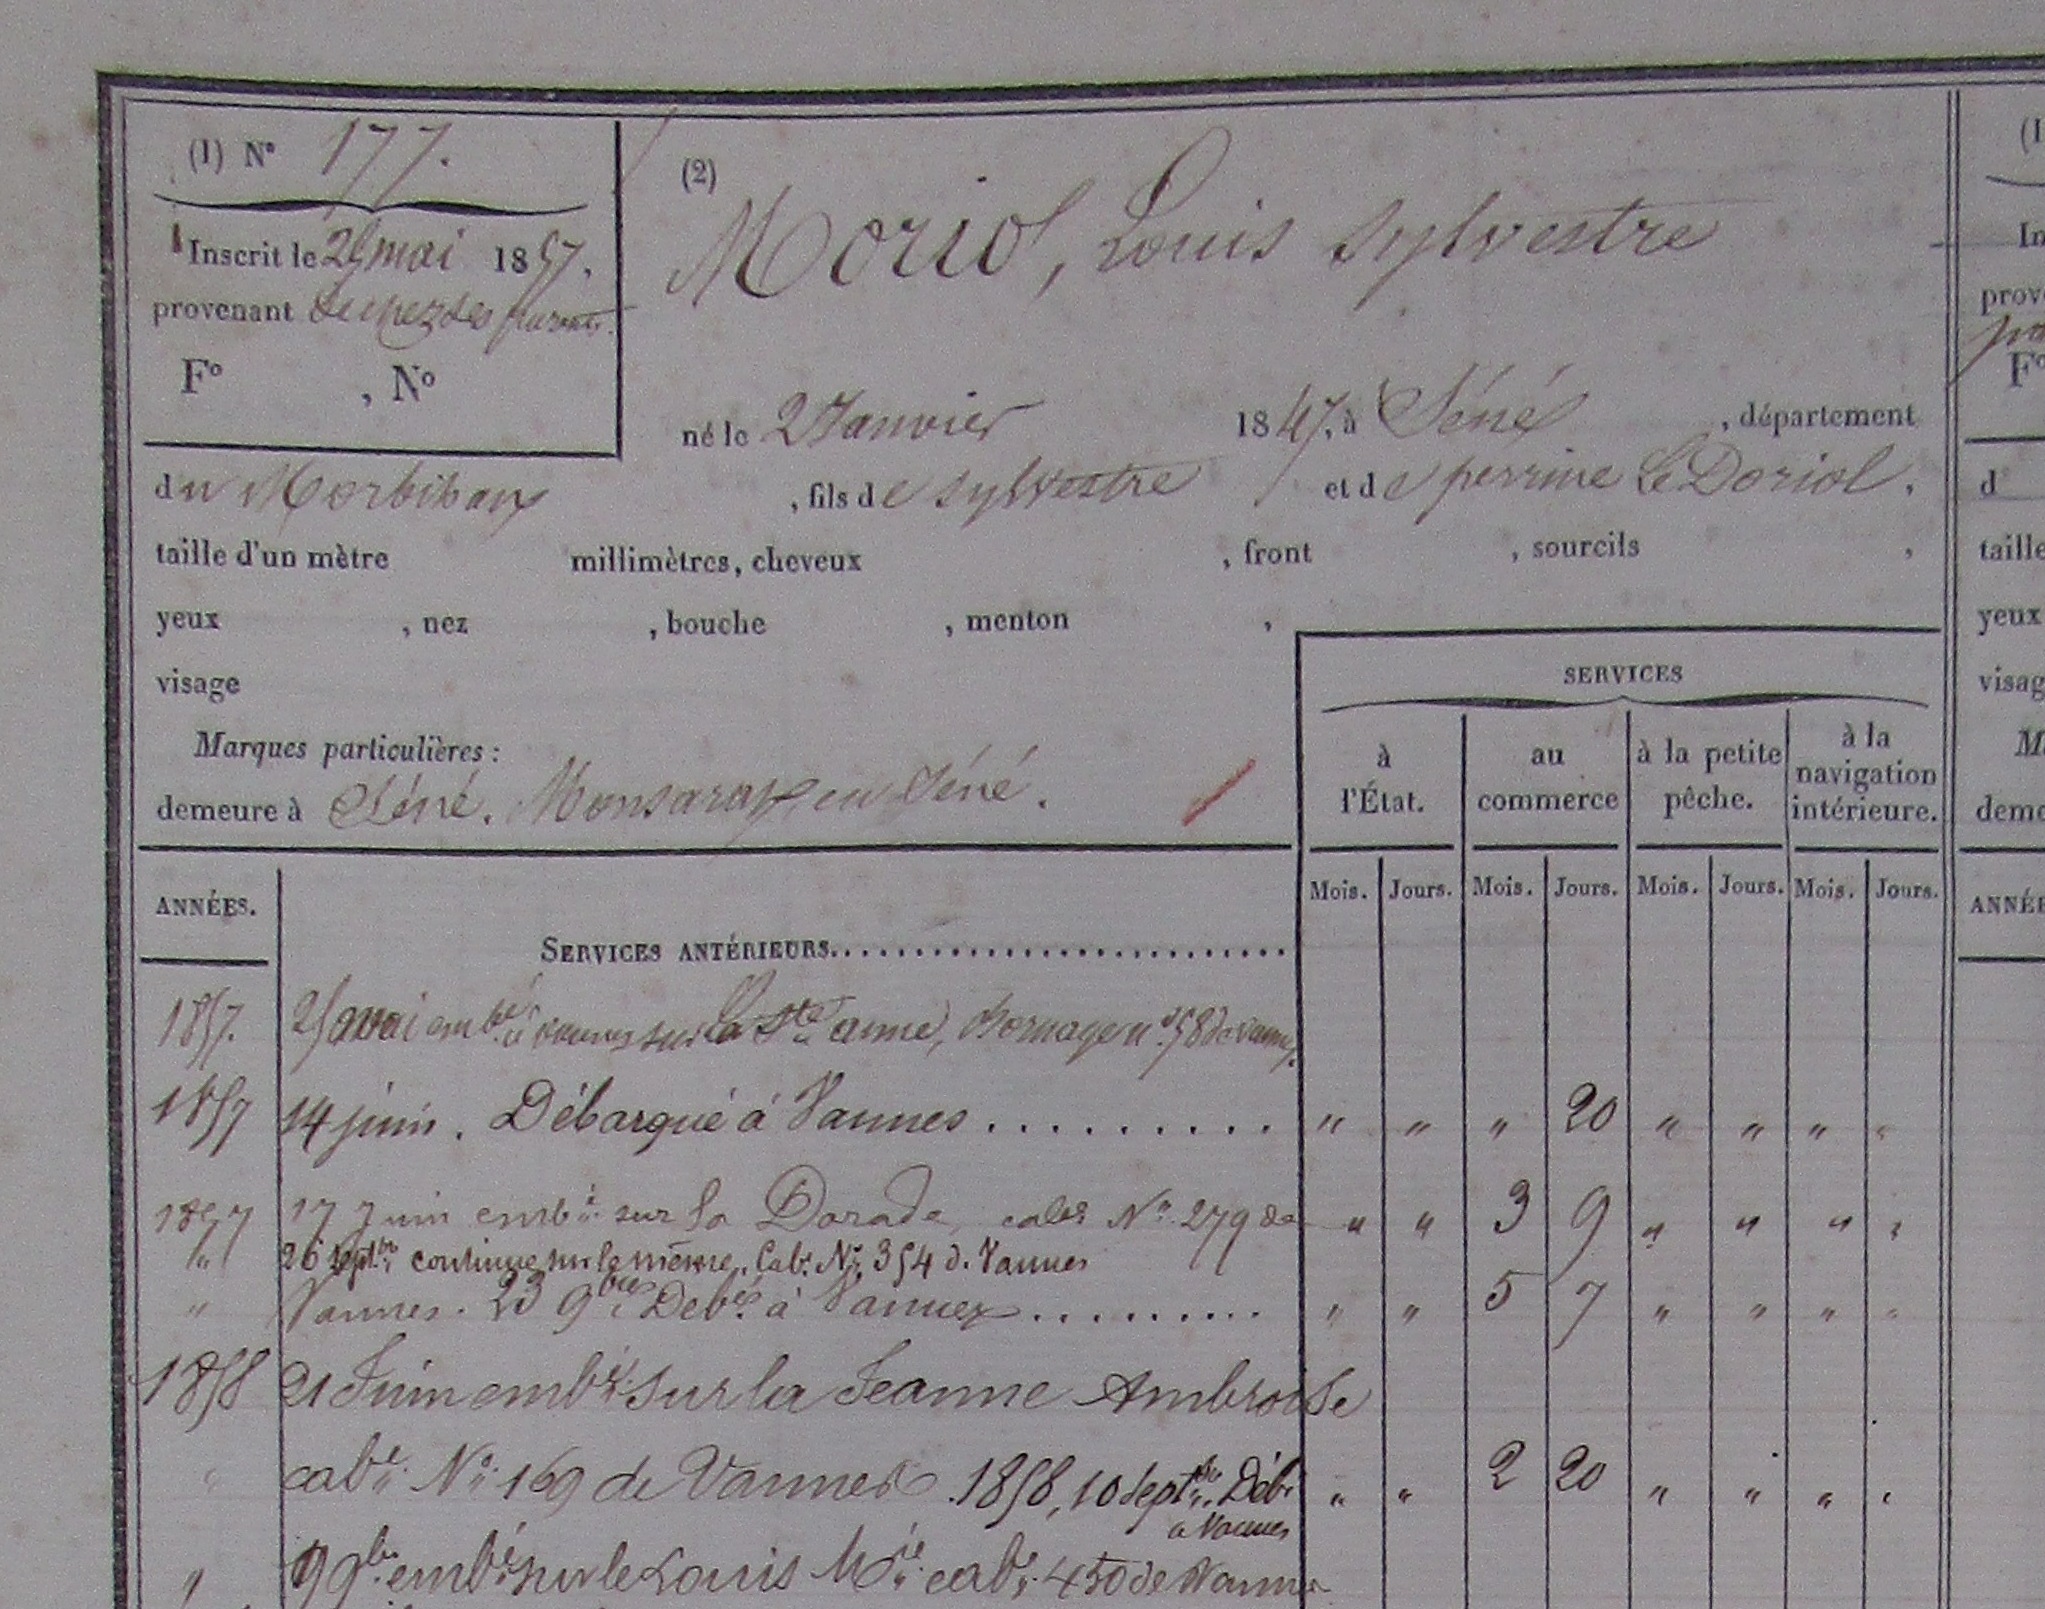 (1) N° 177.
Inscrit le 25 mai 1857.
provenant de chez ses parents.
F° , N°
(2)
Moriol, Louis Sylvestre
né le 2 Janvier 1847, à Séné , département
du Morbihan , fils de Sylvestre et de perrine Le Doriol ,
taille d'un mètre millimètres, cheveux , front , sourcils ,
yeux , nez , bouche , menton ,
visage
Marques particulières :
demeure à Séné. Monsarax en Séné.
SERVICES
à l'État. au commerce à la petite pêche. à la navigation intérieure.
Mois. Jours. Mois. Jours. Mois. Jours. Mois. Jours.
ANNÉES.
SERVICES ANTÉRIEURS
1857. 25 mai emb.é à vannes sur la Ste anne, Bornage n° 58 de vannes.
1857 14 juin. Débarqué à Vannes . . . . . . . . . " " " 20 " " " "
1857 17 Juin emb.é sur la Dorade, cab.e N° 279 de " " 3 9 " " " "
" 26 sept.bre continue sur le même. Cab. N° 354 d. Vannes
" Vannes. 23 9bre Deb.é à Vannes . . . . . . . . . " " 5 7 " " " "
1858 21 Juin emb.é sur la Jeanne Ambroise
" cab.e N° 169 de Vannes. 1858, 10 sept.bre Déb. " " 2 20 " " " "
a Vannes
" 9 9bre emb.é sur le Louis M.ie cab.e 450 de Vannes
(1
In
prov
F°
d'
taille
yeux
visag
M
deme
ANNÉE